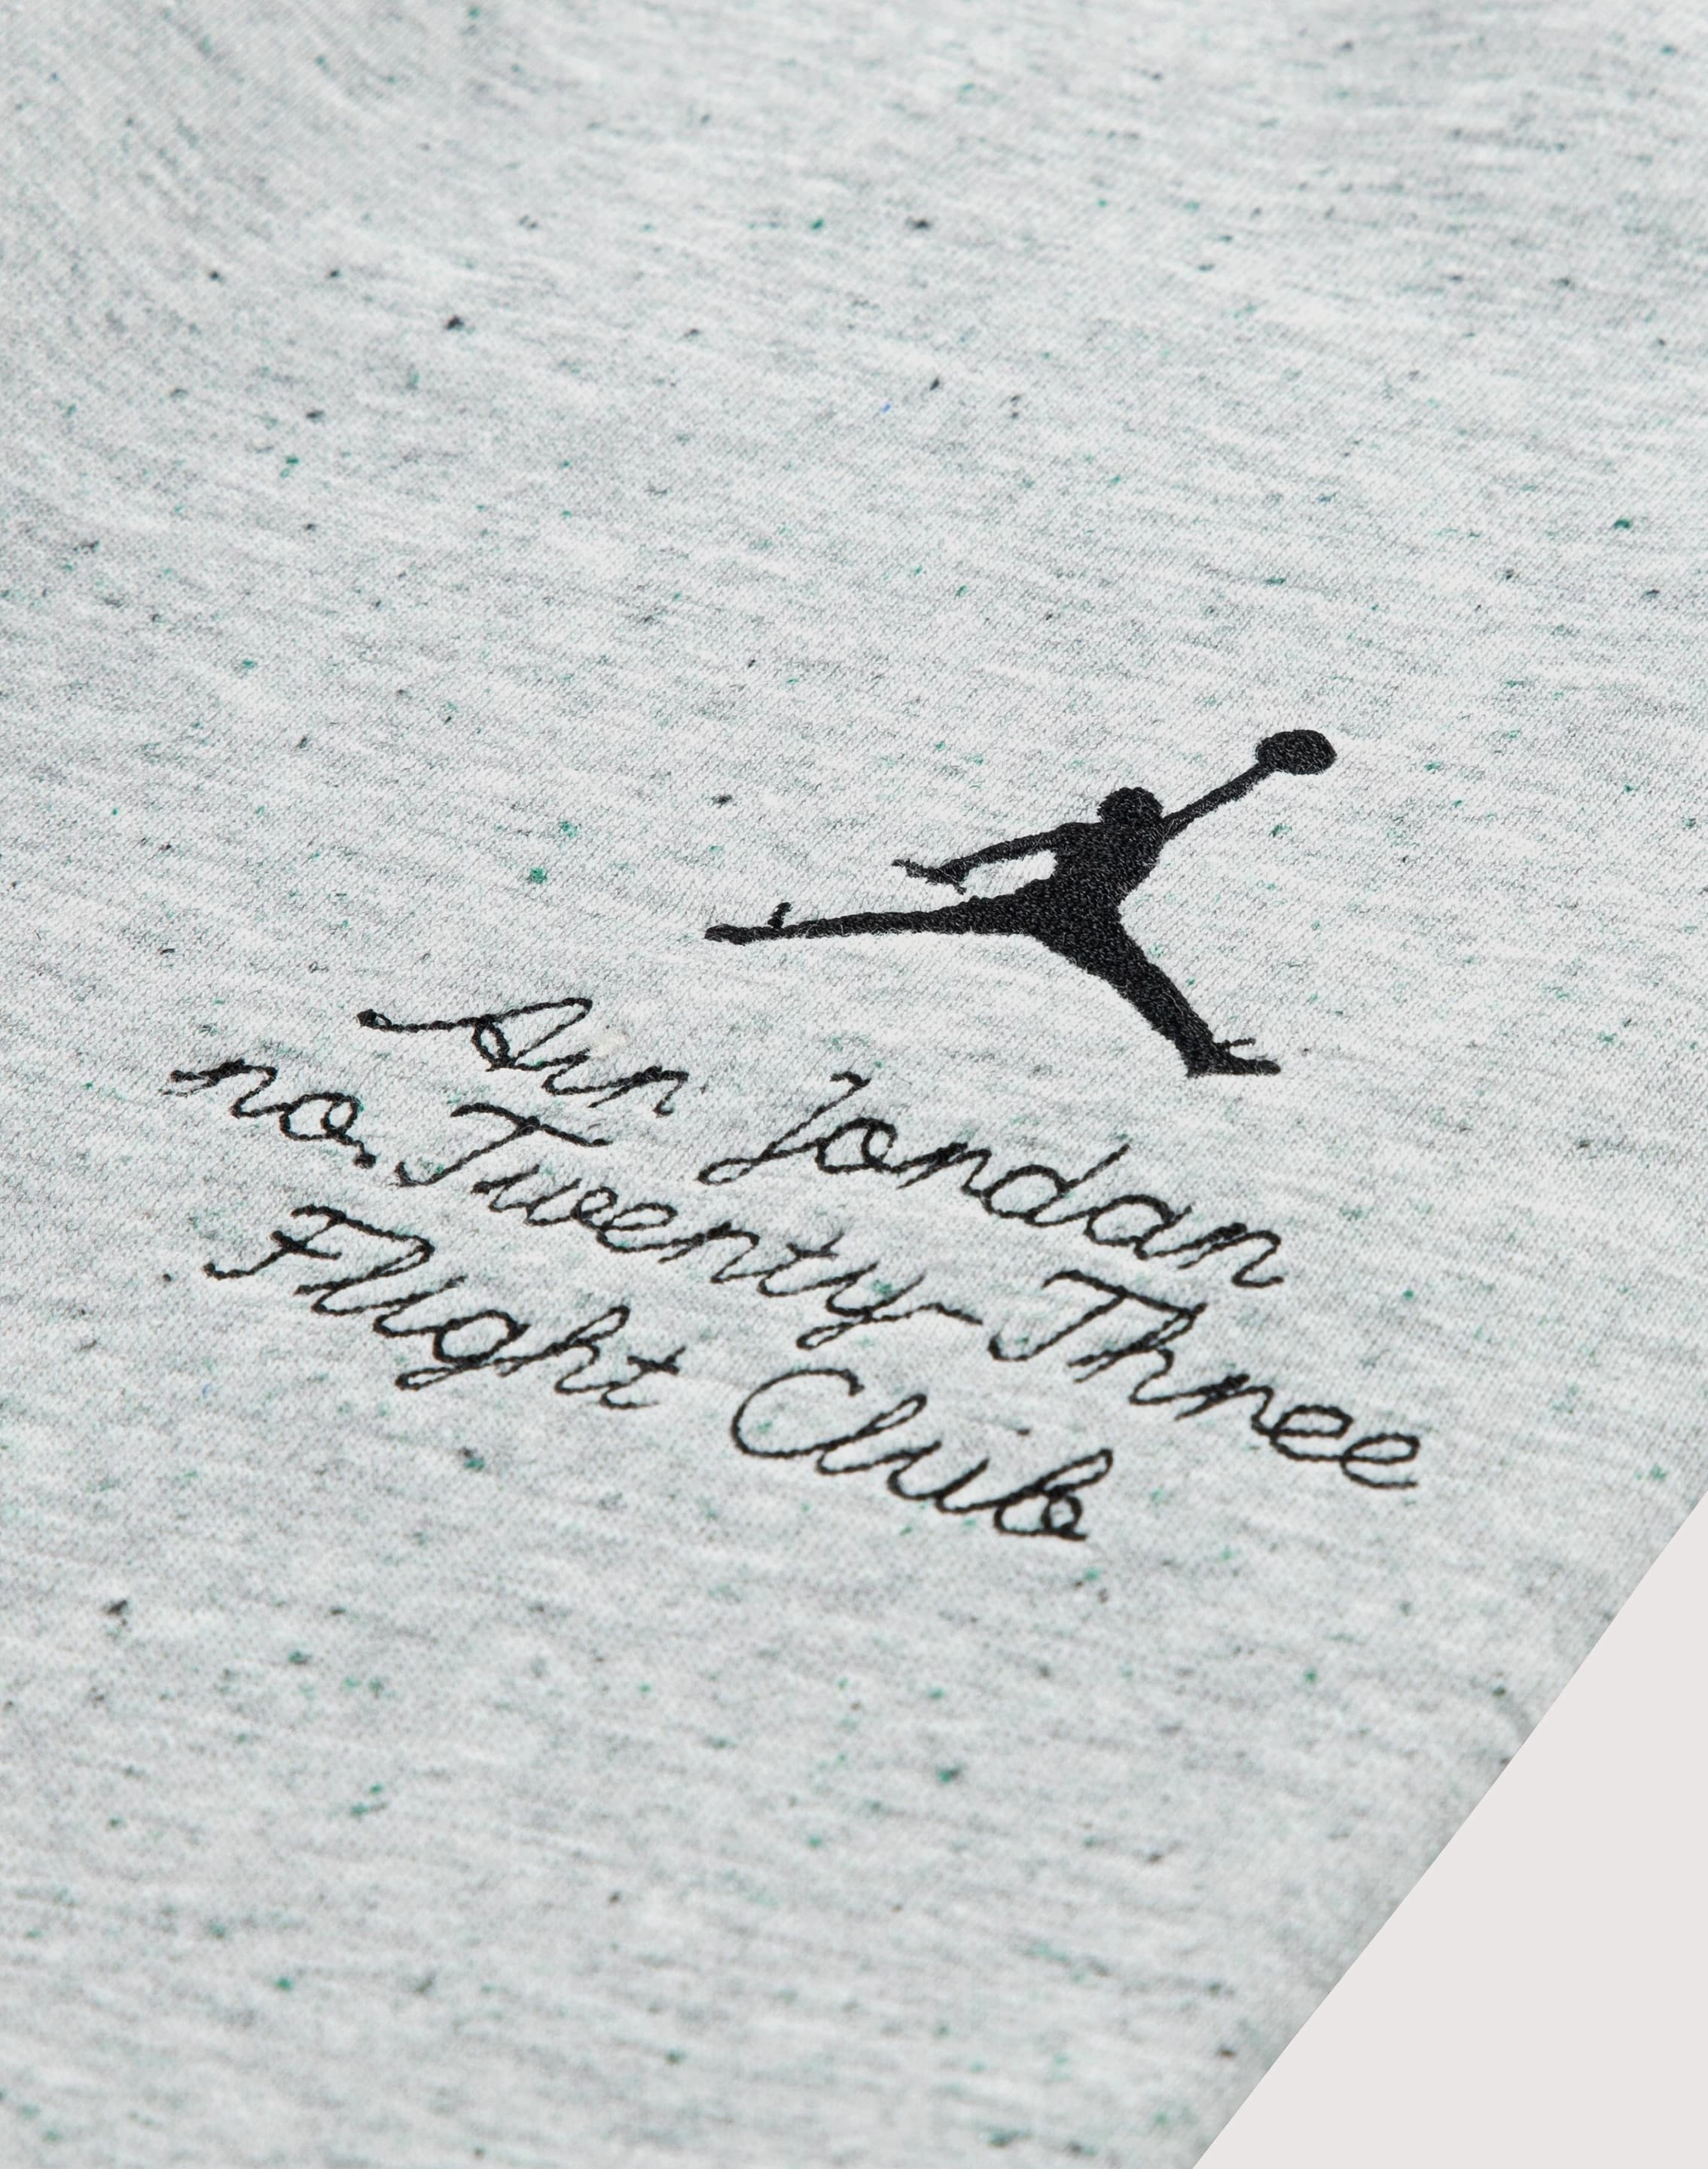 Air Jordan
no. Twenty-Three
Flight Club